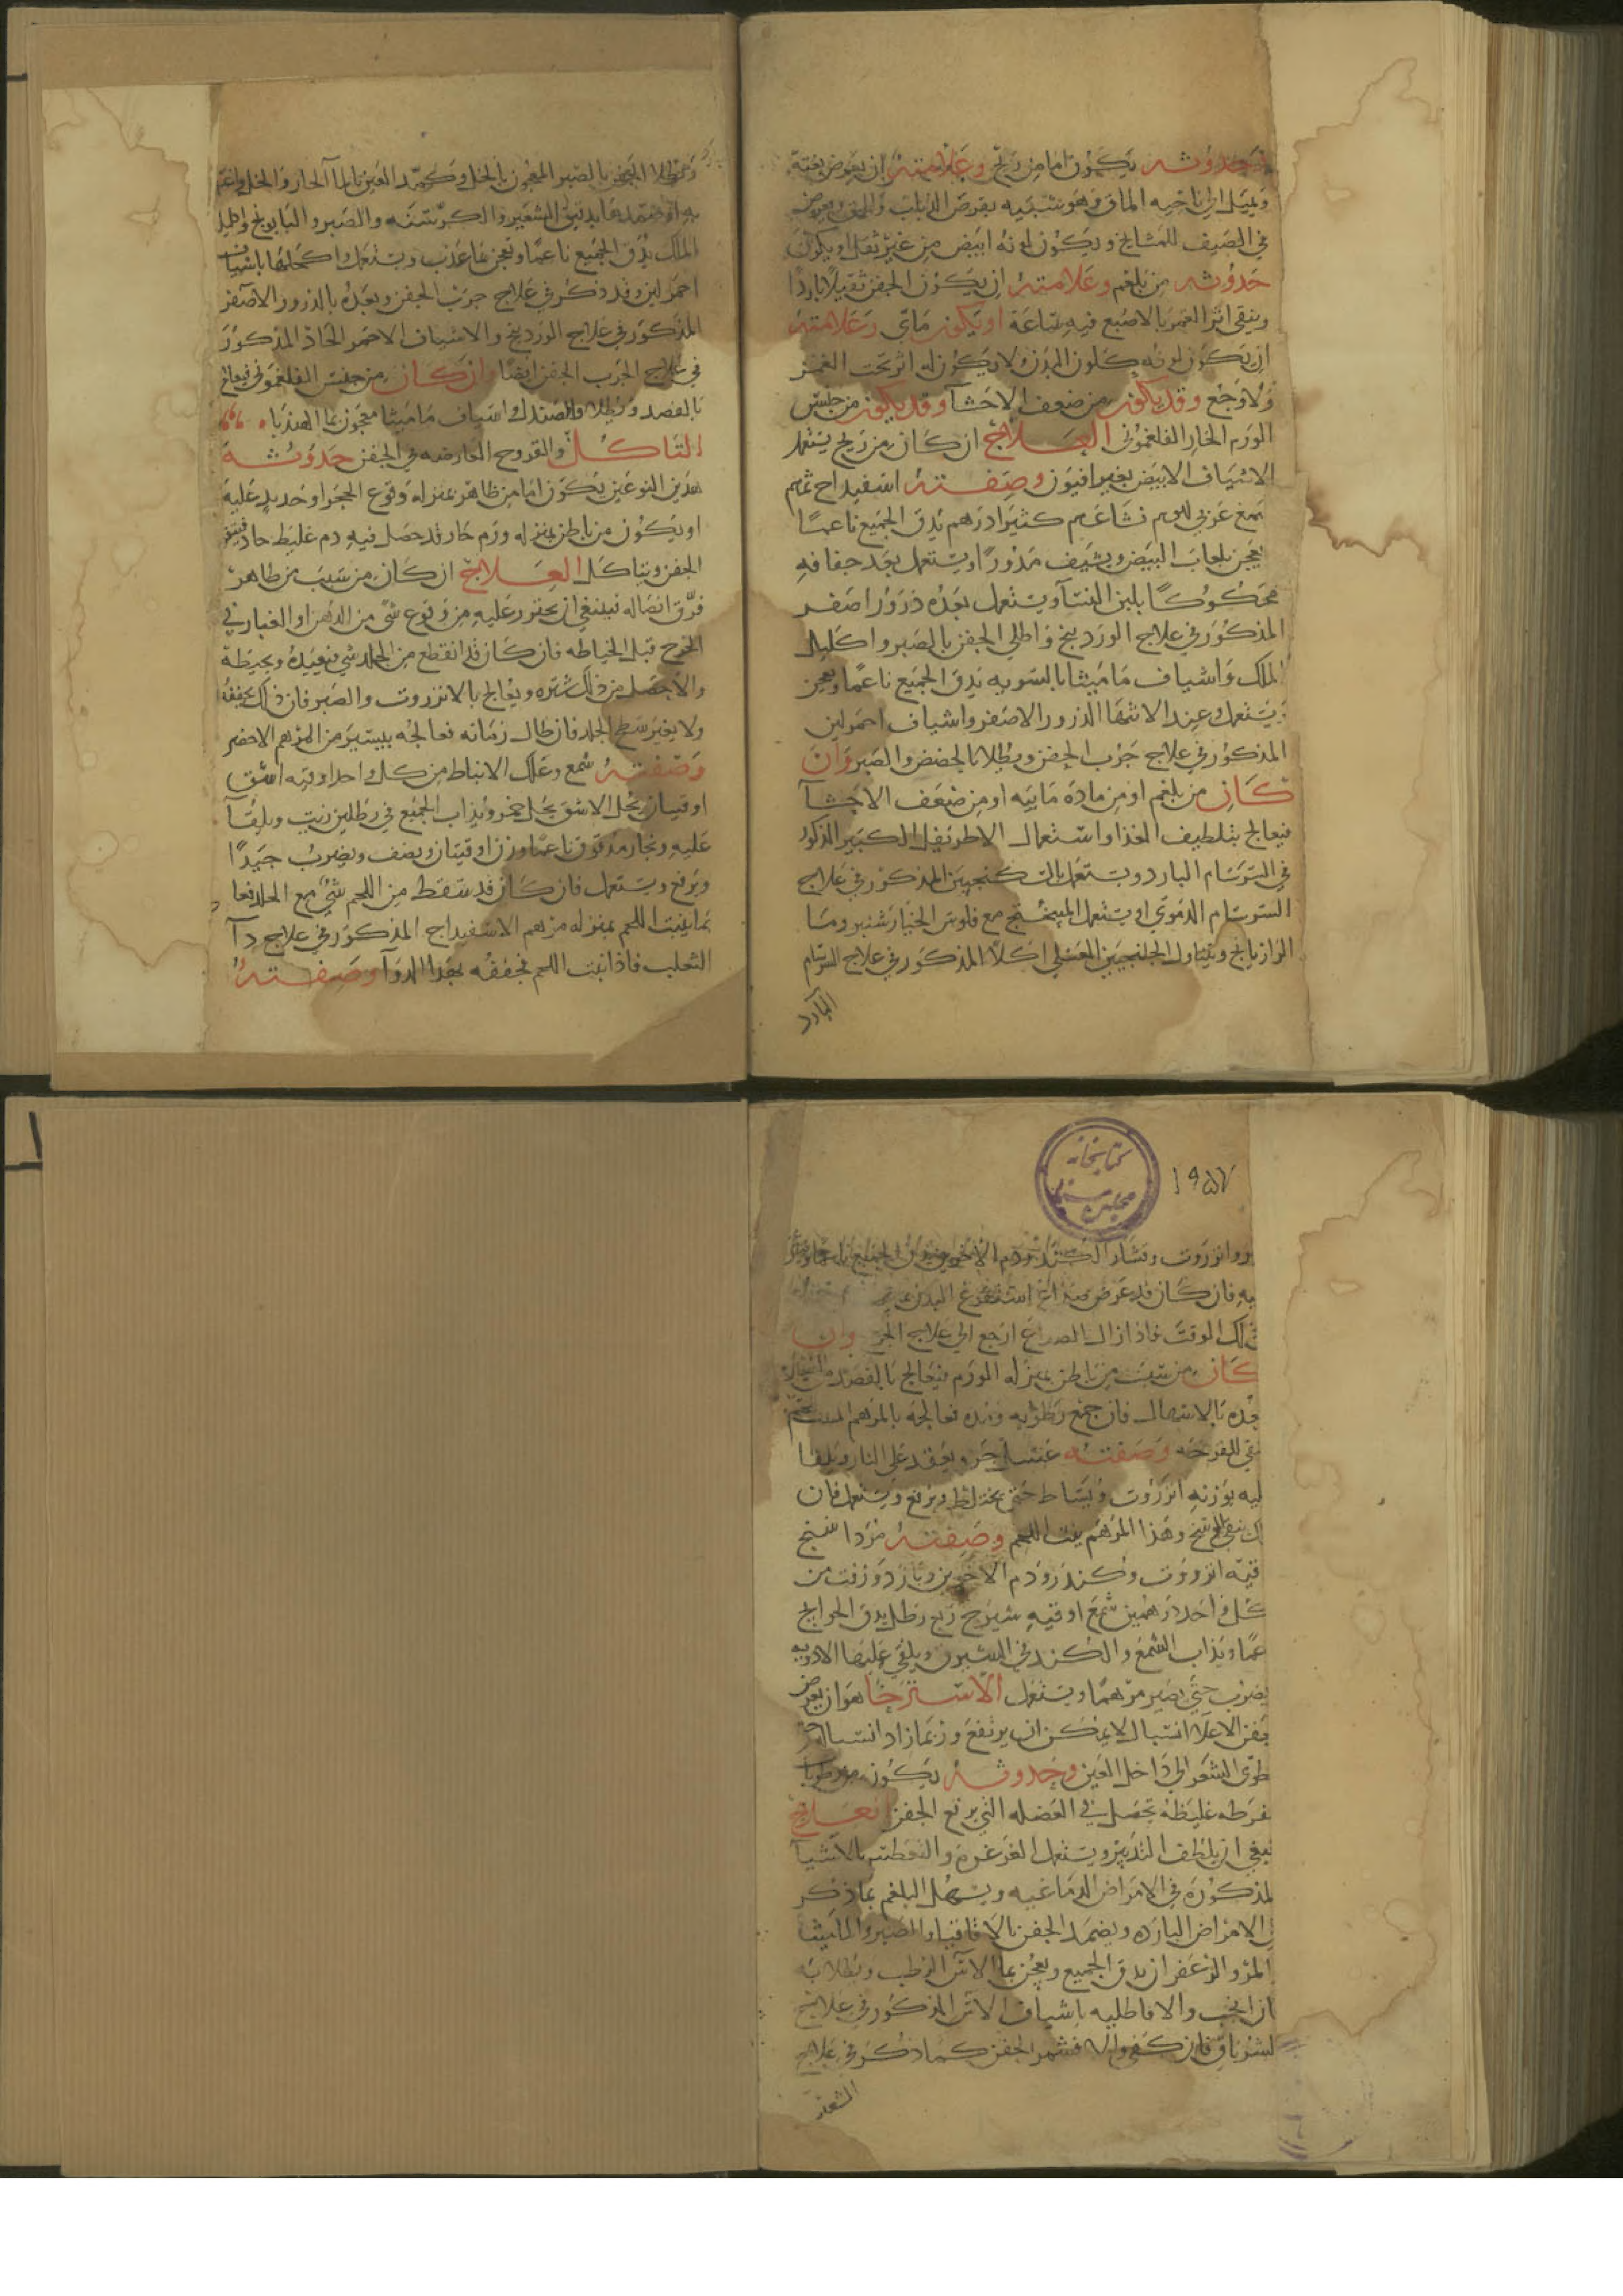 حدوثه يكون اما من ريح وعلامته ان يعرض بغتة
ويميل الى ناحيه الماق وهو شبيه بقرص الذباب والبق يعرض
في الصيف للمشايخ ويكون لونه ابيض من غير ثقل او يكون
حدوثه من بلغم وعلامته ان يكون الجفن ثقيلا باردا
ويبقى اثر الغمز بالاصبع فيه ساعة او يكون مائي وعلامته
ان يكون لونه كلون البدن ولا يكون له اثر تحت الغمز
ولا وجع وقد يكون من ضعف الاحشا وقد يكون من جنس
الورم الحار الفلغموني العلاج ان كان من ريح يستعمل
الاشياف الابيض بغير افيون وصفته اسفيداج
صمغ عربي نشا كثيرا درهم يدق الجميع ناعما
يعجن بلعاب البيض ويشيف مدورا ويستعمل بعد جفافه
محكوكا بلبن النسآ ويستعمل بعده ذرورا اصفر
المذكور في علاج الوردينج واطلي الجفن بالصبر واكليل
الملك واشياف ماميثا بالسويه يدق الجميع ناعما ويعجن
ويستعمل وعند الانتها الذرور الاصفر واشياف احمر لين
المذكور في علاج جرب الجفن ويطلا بالحضض والصبر وان
كان من بلغم او من مادة مائيه او من ضعف الاحشآ
فيعالج بتلطيف الغذا واستعمال الاطريفل الكبير المذكور
في السرسام البارد ويستعمل بالسكنجبين المذكور في علاج
السرسام الدموي او يستعمل الميبختج مع فلوس الخيارشنبر وما
الرازيانج ويتناول الجلنجبين العسلي اكلا المذكور في علاج السرسام
البارد
ويطلا الجفن بالصبر المعجون بالخل وكمد العين بالمآ الحار والخل
به او ضمدها بدقيق الشعير والكرسنه والصبر والبابونج واكليل
الملك يدق الجميع ناعما ويعجن بما عذب ويستعمل واكحلها باشياف
احمر لين وقد ذكر في علاج جرب الجفن وبعده بالذرور الاصفر
المذكور في علاج الوردينج والاشياف الاحمر الحاد المذكور
في علاج الجرب الجفن ايضا وان كان من جنس الفلغموني فيعالج
بالفصد ويطلا بالصندل واشياف ماميثا معجون بما الهندبا
التاكل والقروح العارضه في الجفن حدوثه
هذين النوعين يكون اما من ظاهر بمنزلة وقوع الحجر او حديد عليه
او يكون من باطن بمنزله ورم حار قد حصل فيه دم غليظ حاد
الجفن ويتاكل العلاج ان كان من سبب من ظاهر
فرق اتصاله فينبغي ان يحترز عليه من وقوع شي من الدهن او الغبار في
الجرح قبل الخياطه فان كان قد انقطع من الجلد شي فيعيده ويخيطه
والا حصل من ذلك شتره ويعالج بالانزروت والصبر فان ذلك يجففه
ولا يغير سطح الجلد فان طال زمانه فعالجه بيسير من المرهم الاخضر
وصفته شمع وعلك الانباط من كل واحد اوقيه اشق
اوقيتان يحل الاشق بخل خمر ويذاب الجميع في رطلين زيت ويلقآ
عليه زنجار مدقوق ناعما وزن اوقيتان ونصف ويضرب جيدا
ويرفع ويستعمل فان كان قد سقط من اللحم شي مع الجلد فعا
بما ينبت اللحم بمنزله مرهم الاسفيداج المذكور في علاج دآ
الثعلب فاذا نبت اللحم فجففه بهذا الدوآ وصفته
كتابخانه مجلس
١٩٥٧
وانزروت ونشار الكندر ودم الاخوين يدق الجميع ناعما
به فان كان قد عرض صداع استفرغ البدن
ذلك الوقت فاذا زال الصداع ارجع الى علاج الجر وان
كان من سبب من باطن بمنزله الورم فيعالج بالفصد
بعده بالاسهال فان جمع رطوبه ومده فعالجه بالمرهم
نقي للقرحه وصفته عسل جزو يعقد على النار ويلقا
ليه بوزنه انزروت ويساط حتى يختلط ويرفع ويستعمل فان
ينقي الوسخ وهذا المرهم ينبت اللحم وصفته مردا سنج
قيه انزروت وكندر ودم الاخوين وبارزد وزفت من
كل واحد درهمين شمع اوقيه شيرج ربع رطل يدق الحوايج
عما ويذاب الشمع والكندر في الشيرج ويلقى عليها الادويه
يضرب حتى يصير مرهما ويستعمل الاسترخا هو ان يعرض
جفن الاعلا انسبال لا يمكن ان يرتفع وربما زاد انسبال
طوى الشعر الى داخل العين وحدوثه يكون من رطوبا
فرطه غليظه تحصل في العضله التي ترفع الجفن العلاج
نبغي ان يلطف التدبير ويستعمل الغرغره والتعطيس بالاشيآ
لمذكوره في الامراض الدماغيه ويسهل البلغم بما ذكر
الامراض البارده ويضمد الجفن بالاقاقيا والصبر والماميثا
المر والزعفران يدق الجميع ويعجن بما الاس الرطب ويطلا به
ان انجب والا فاطليه باشياف الاس المذكور في علاج
لشرناق فان كفى والا فشمر الجفن كما ذكر في علاج
الشعر